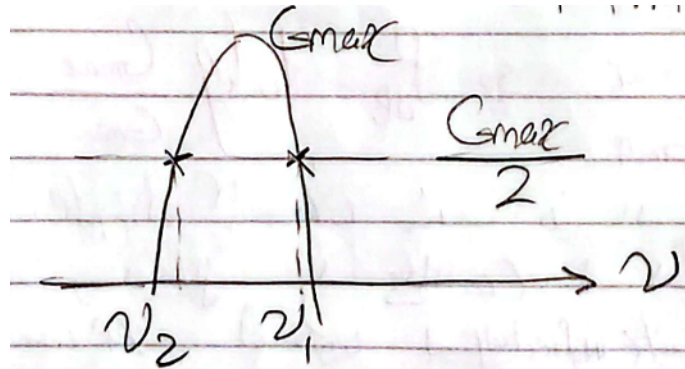 Gmax
Gmax
2
ν
ν2
ν1